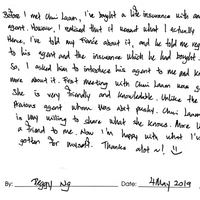 Before I met Chui Laan, I've bought a life insurance with an
agent. However, I realised that it wasnt what I actually
Hence, I've told my Fiance about it, and he told me reg
to his agent and the insurance which he had bought.
So, I asked him to introduce his agent to me and
more about it. First meeting with Chui Laan was
She is very friendly and knowledgable. Unlike the
previous agent whom was abit pushy. Chui Laan
is very willing to share what she knows. More
a friend to me. Now I'm happy with what I've
gotten for myself. Thanks alot ~! :)
By: Peggy Ng Date: 4 May 2019